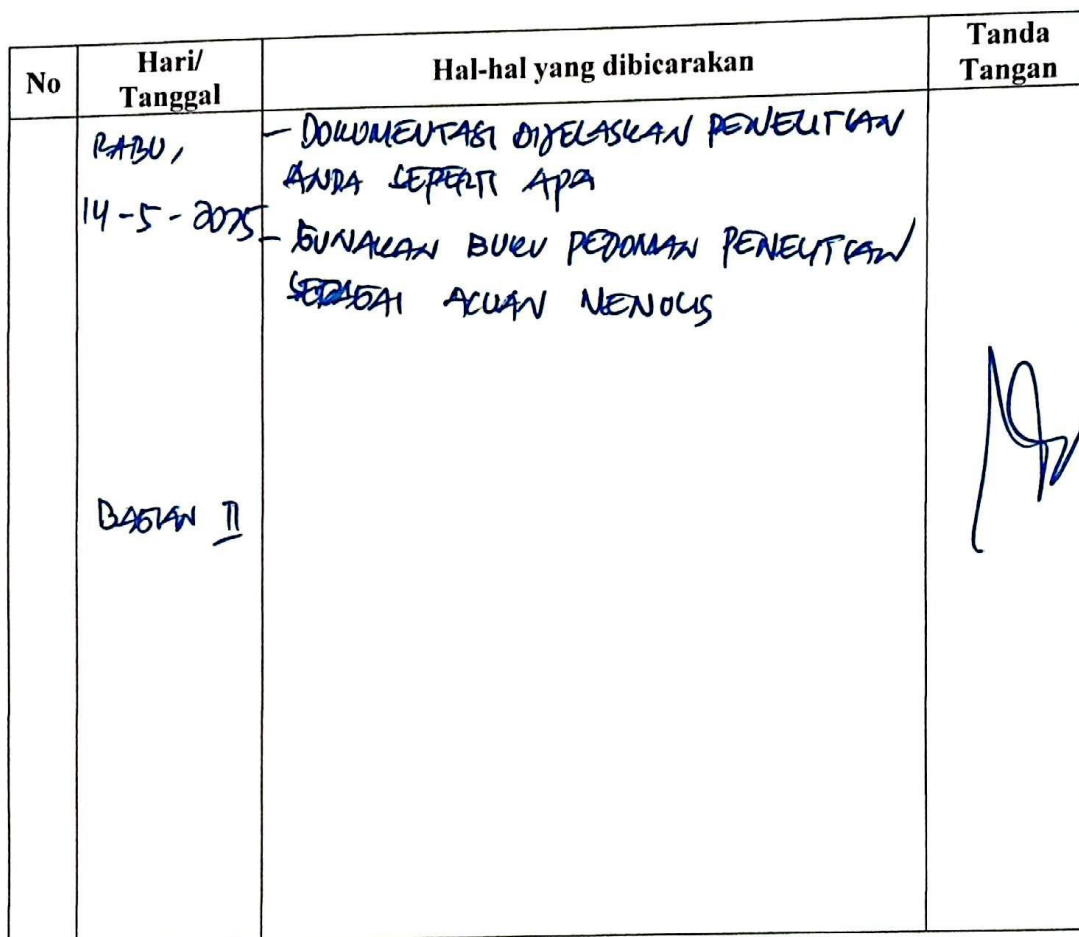 No
Hari/
Tanggal
Hal-hal yang dibicarakan
Tanda
Tangan
RABU,
14-5-2025
- DOKUMENTASI DIJELASKAN PENELITIAN
ANDA SEPERTI APA
- GUNAKAN BUKU PEDOMAN PENELITIAN
SEBAGAI ACUAN MENULIS
BAGIAN II